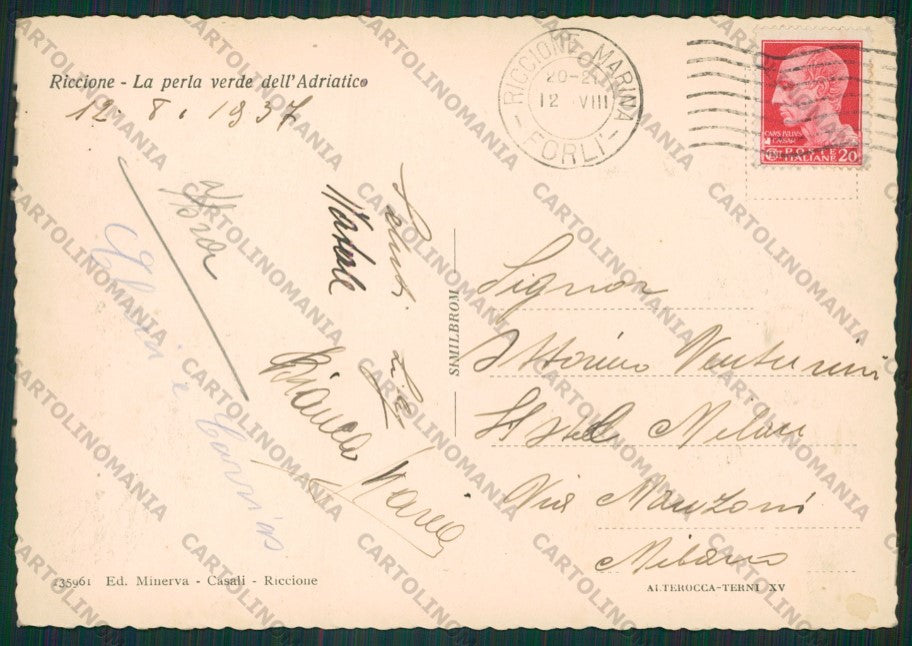 Riccione - La perla verde dell'Adriatico
12. 8. 1937
RICCIONE MARINA
20-21
12 VIII
FORLI'
CAIVS IVLIVS
CAESAR
POSTE
ITALIANE 20
Saluti
Bianca
Maria
SIMILBROM
Signor
Ottorino Venturini
Hotel Milan
Via Manzoni
Milano
135961 Ed. Minerva - Casali - Riccione
ALTEROCCA-TERNI XV
CARTOLINOMANIA